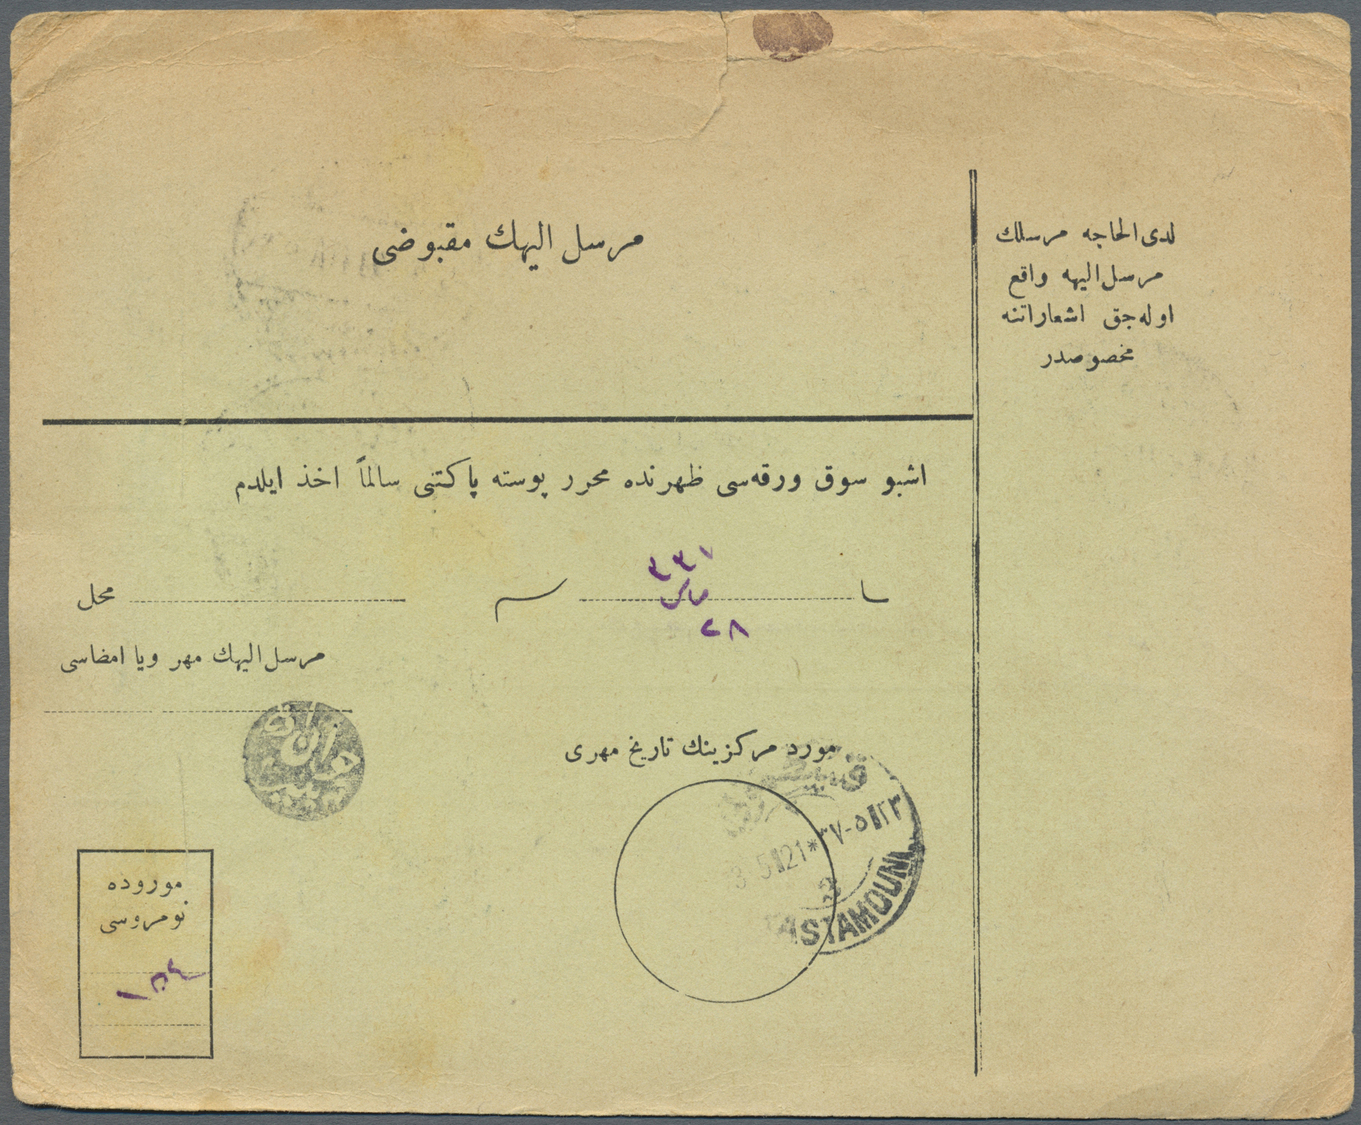 لدى الحاجه مرسلك
مرسل اليهه واقع
اوله‌جق اشعاراتنه
مخصوصدر
مرسل اليهك مقبوضى
اشبو سوق ورقه‌سى ظهرنده محرر پوسته پاكتنى سالماً اخذ ايلدم
٣٣٧
مارس
٢٨
محل
مرسل اليهك مهر ويا امضاسى
مورد مركزينك تاريخ مهرى
3 5 21 * ٣٧-٥
ASTAMOUNI
موروده
نومروسى